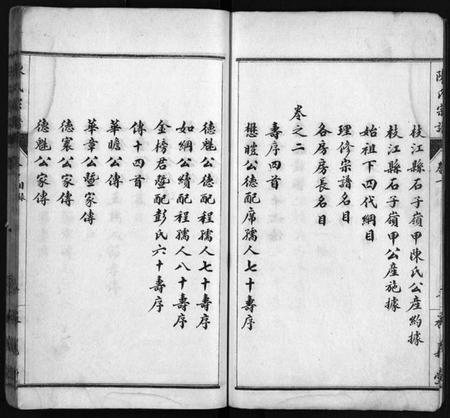 陳氏宗譜
卷一
枝江縣石子嶺甲陳氏公產約據
枝江縣石子嶺甲公產施據
始祖下四代綱目
理修宗譜名目
各房房長名目
卷之二
壽序四首
懋瞪公德配席孺人七十壽序
德魁公德配程孺人七十壽序
如綱公續配程孺人八十壽序
金榜君暨配彭氏六十壽序
傳十四首
華瞻公傳
華章公暨家傳
德寰公家傳
德魁公家傳
目錄